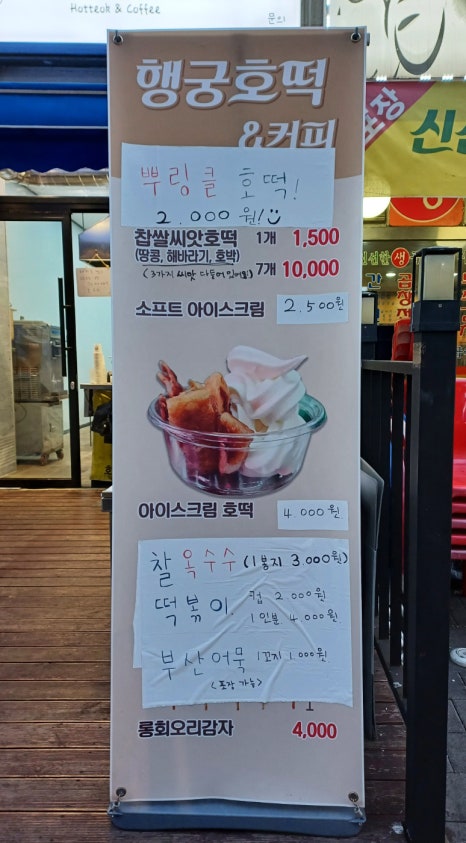 Hotteok & Coffee
문의
행궁호떡
&커피
뿌링클 호떡!
2.000원!
찹쌀씨앗호떡 1개 1,500
(땅콩, 해바라기, 호박)
(3가지 씨앗 다 들어있어요) 7개 10,000
소프트 아이스크림 2.500원
아이스크림 호떡 4.000원
찰옥수수 (1봉지 3.000원)
떡볶이 컵 2.000원
1인분 4.000원
부산어묵 1꼬지 1.000원
<포장 가능>
롱회오리감자 4,000
포장
신선
생
간